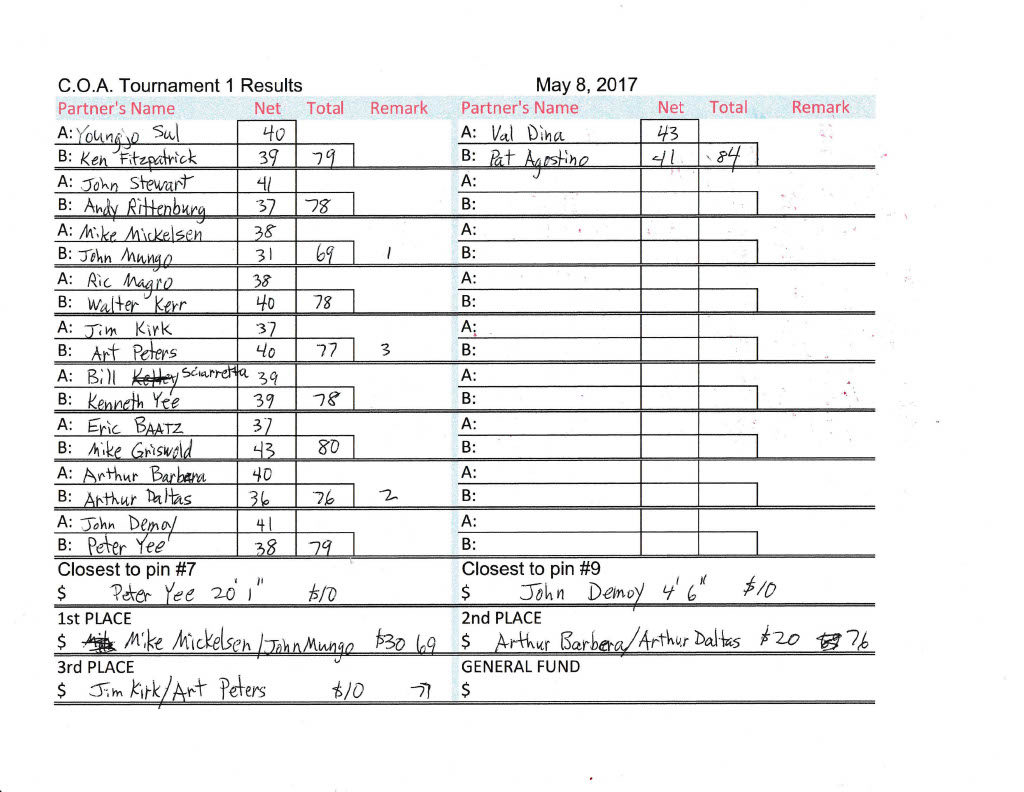 C.O.A. Tournament 1 Results May 8, 2017
Partner's Name Net Total Remark Partner's Name Net Total Remark
A: Youngjo Sul 40 A: Val Dina 43
B: Ken Fitzpatrick 39 79 B: Pat Agostino 41 84
A: John Stewart 41 A:
B: Andy Rittenburg 37 78 B:
A: Mike Mickelsen 38 A:
B: John Mungo 31 69 1 B:
A: Ric Magro 38 A:
B: Walter Kerr 40 78 B:
A: Jim Kirk 37 A:
B: Art Peters 40 77 3 B:
A: Bill Sciarretta 39 A:
B: Kenneth Yee 39 78 B:
A: Eric BAATZ 37 A:
B: Mike Griswold 43 80 B:
A: Arthur Barbera 40 A:
B: Arthur Daltas 36 76 2 B:
A: John Demoy 41 A:
B: Peter Yee 38 79 B:
Closest to pin #7 Closest to pin #9
$ Peter Yee 20' 1" $10 $ John Demoy 4' 6" $10
1st PLACE 2nd PLACE
$ Mike Mickelsen/John Mungo $30 69 $ Arthur Barbera/Arthur Daltas $20 76
3rd PLACE GENERAL FUND
$ Jim Kirk/Art Peters $10 77 $